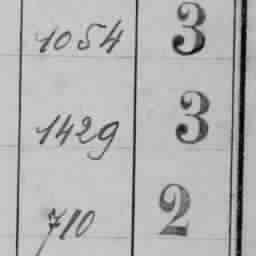 1054 3
1429 3
710 2